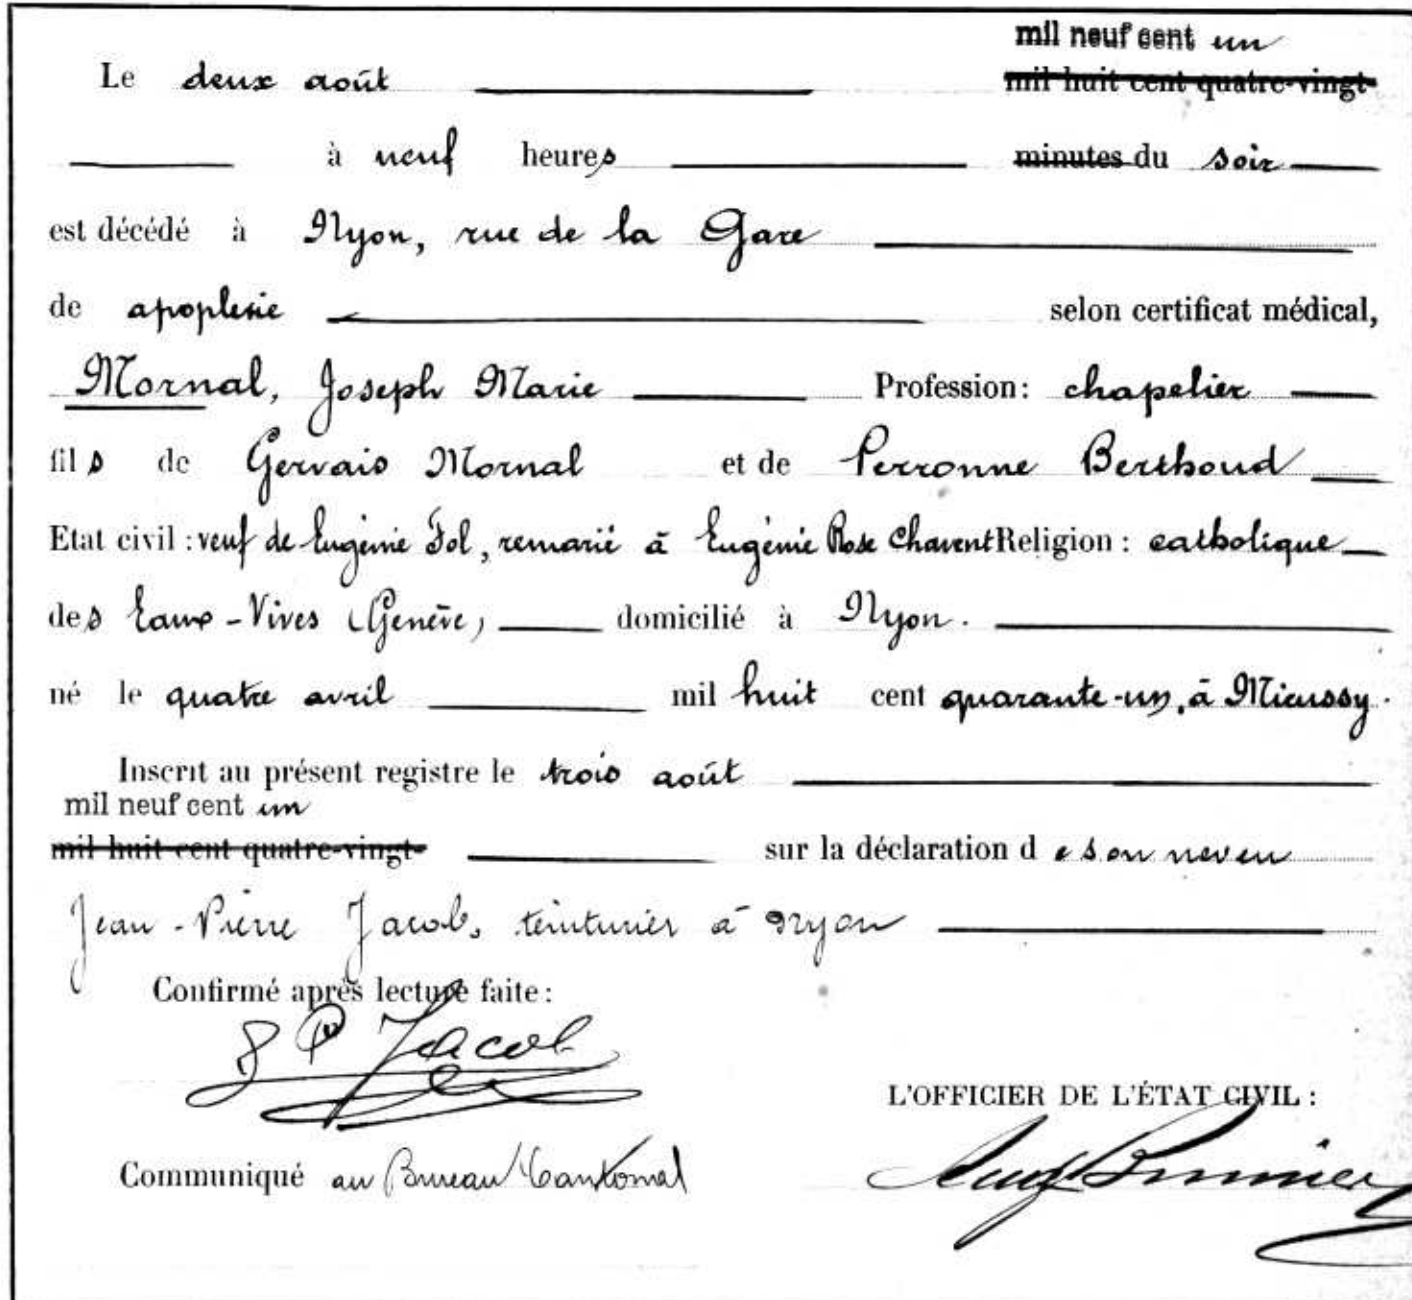 mil neuf cent un
Le deux août mil huit cent quatre-vingt-
à neuf heures minutes du soir
est décédé à Nyon, rue de la Gare
de apoplexie selon certificat médical,
Mornal, Joseph Marie Profession: chapelier
fils de Gervais Mornal et de Perronne Berthoud
Etat civil : veuf de Eugénie Fol, remarié à Eugénie Rose Chavent Religion : catholique
des Eaux-Vives (Genève) domicilié à Nyon.
né le quatre avril mil huit cent quarante-un, à Mieussy.
Inscrit au présent registre le trois août
mil neuf cent un
mil huit cent quatre-vingt- sur la déclaration de son neveu
Jean-Pierre Jacob, teinturier à Nyon
Confirmé après lecture faite :
J P Jacob
L'OFFICIER DE L'ÉTAT CIVIL :
Communiqué au Bureau Cantonal